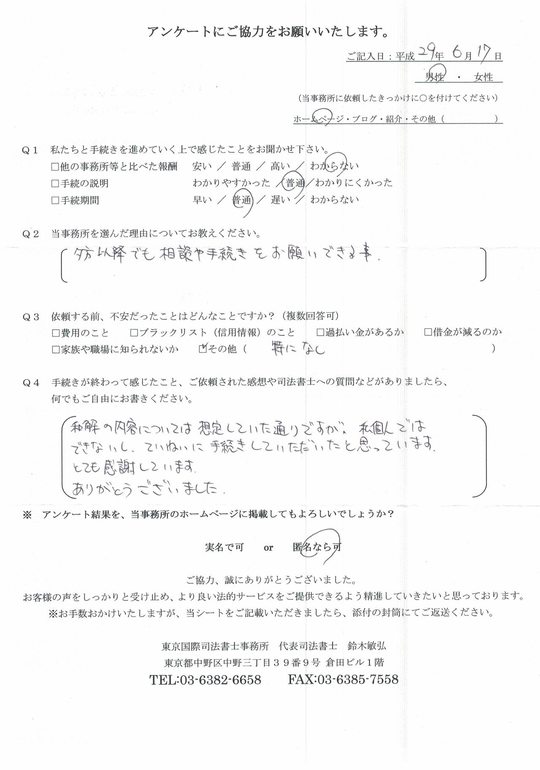 アンケートにご協力をお願いいたします。
ご記入日：平成 29年 6月 17日
男性 ・ 女性
（当事務所に依頼したきっかけに○を付けてください）
ホームページ・ブログ・紹介・その他（　　　）
Ｑ１　私たちと手続きを進めていく上で感じたことをお聞かせ下さい。
□他の事務所等と比べた報酬　安い ／ 普通 ／ 高い ／ わからない
□手続の説明　わかりやすかった ／ 普通 ／ わかりにくかった
□手続期間　早い ／ 普通 ／ 遅い ／ わからない
Ｑ２　当事務所を選んだ理由についてお教えください。
夕方以降でも相談や手続きをお願いできる事.
Ｑ３　依頼する前、不安だったことはどんなことですか？（複数回答可）
□費用のこと　□ブラックリスト（信用情報）のこと　□過払い金があるか　□借金が減るのか
□家族や職場に知られないか　☑その他（　特になし　）
Ｑ４　手続きが終わって感じたこと、ご依頼された感想や司法書士への質問などがありましたら、
何でもご自由にお書きください。
和解の内容については想定していた通りですが、私個人では
できないし、ていねいに手続きしていただいたと思っています.
とても感謝しています.
ありがとうございました.
※　アンケート結果を、当事務所のホームページに掲載してもよろしいでしょうか？
実名で可　or　匿名なら可
ご協力、誠にありがとうございました。
お客様の声をしっかりと受け止め、より良い法的サービスをご提供できるよう精進していきたいと思っております。
※お手数おかけいたしますが、当シートをご記載いただきましたら、添付の封筒にてご返送ください。
東京国際司法書士事務所　代表司法書士　鈴木敏弘
東京都中野区中野三丁目３９番９号 倉田ビル１階
TEL:03-6382-6658　FAX:03-6385-7558